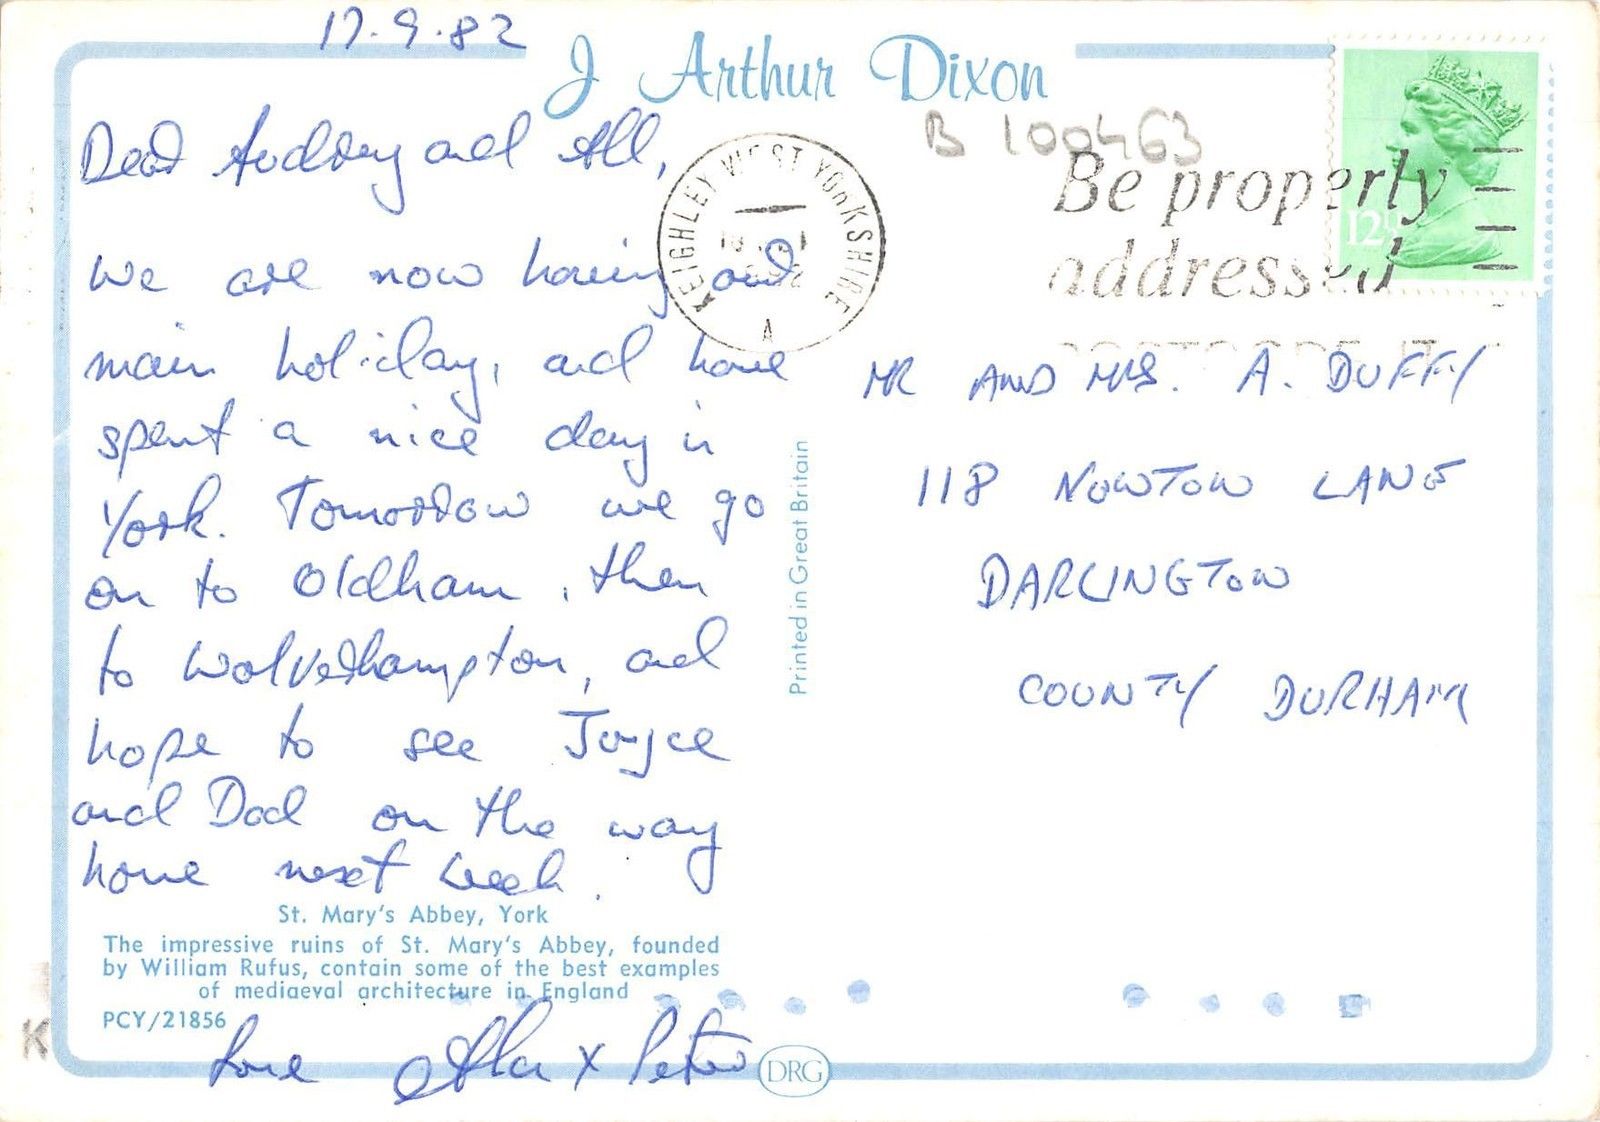 17.9.82
J Arthur Dixon
B 100463
Dear Audrey and All,
We are now having our
main holiday, and have
spent a nice day in
York. Tomorrow we go
on to Oldham, then
to Wolverhampton, and
hope to see Joyce
and Dad on the way
home next week.
St. Mary's Abbey, York
The impressive ruins of St. Mary's Abbey, founded
by William Rufus, contain some of the best examples
of mediaeval architecture in England
PCY/21856
Love Alan x Peter
DRG
Printed in Great Britain
KEIGHLEY WEST YORKSHIRE
A
Be properly
addressed
12½
MR AND MRS. A. DUFFY
118 NEWTON LANE
DARLINGTON
COUNTY DURHAM
K